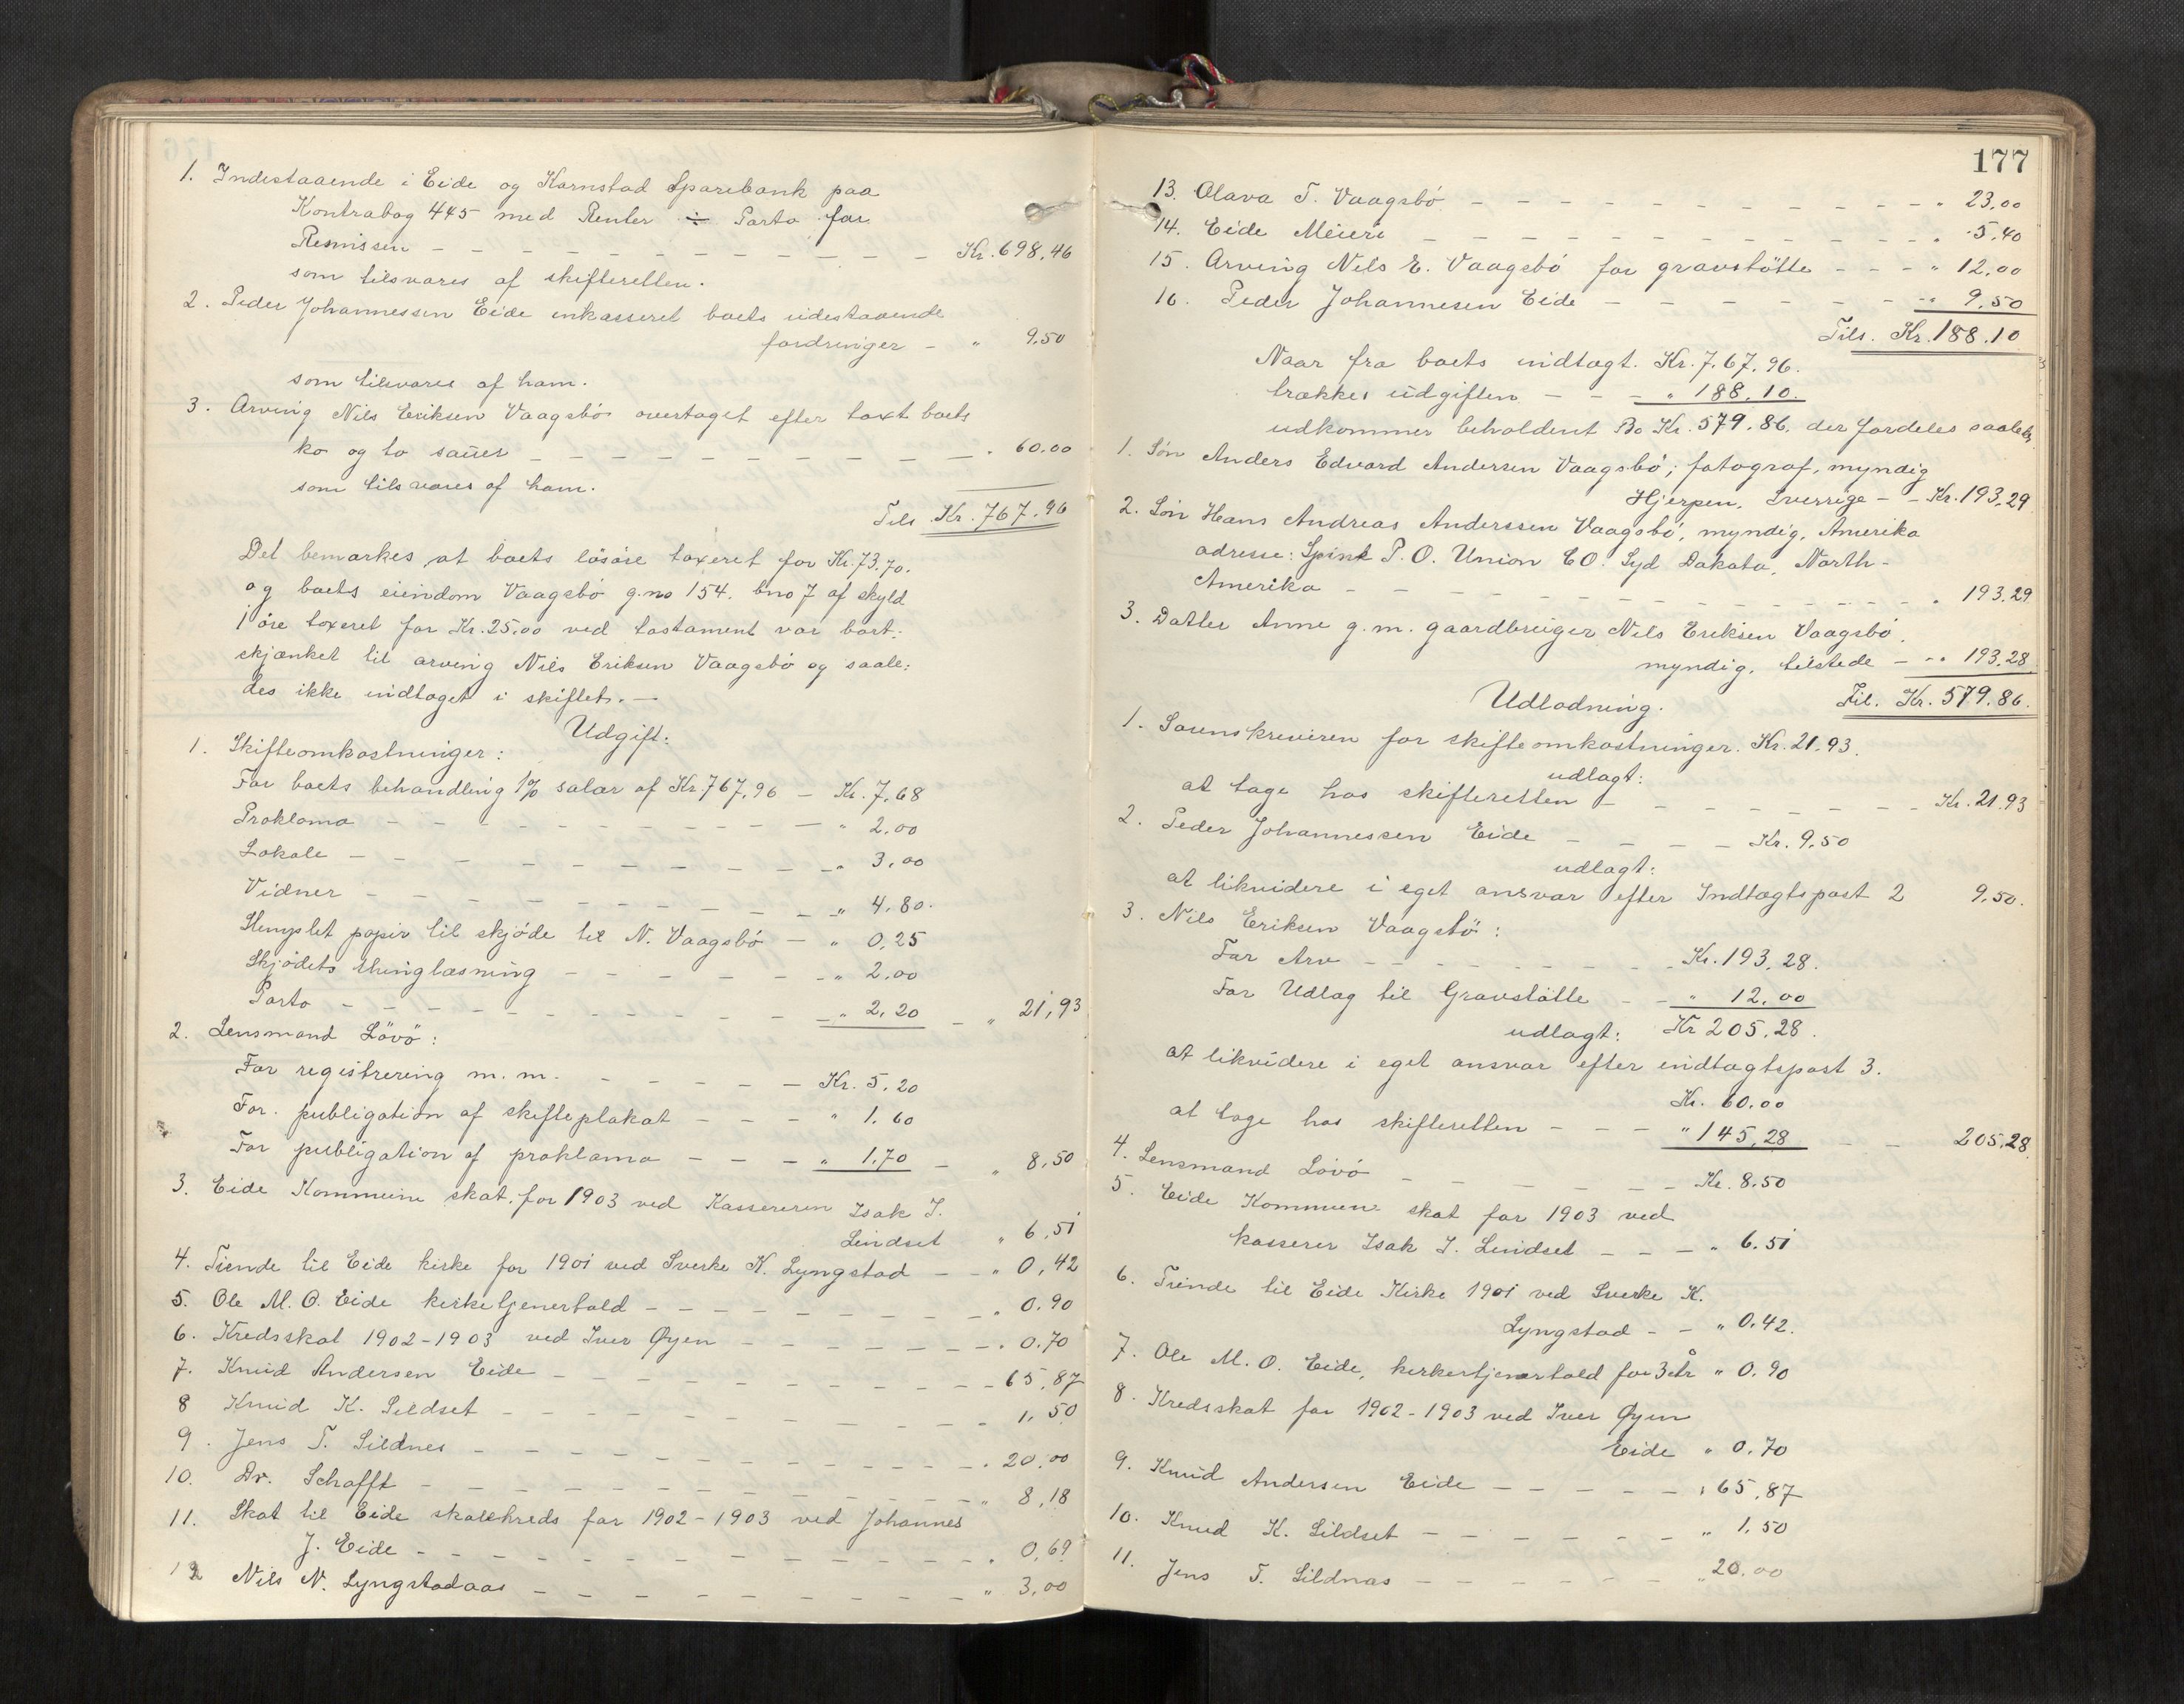 1. Indestaaende i Eide og Kornstad Sparebank paa
Kontrabog 445 med Renter ÷ Porto for
Remissen - - - - - - - - - - Kr. 698,46
som tilsvares af skifteretten.
2. Peder Johannessen Eide inkasseret boets udestaaende
fordringer - " 9,50
som tilsvares af ham.
3. Arving Nils Eriksen Vaagsbö overtaget efter taxt boets
ko og to sauer - - - - - - - - - " 60.00
som tilsvares af ham.
Tils. Kr. 767.96
Det bemærkes, at boets lösöre taxeret for Kr. 73.70.
og boets eiendom Vaagsbö g.no 154. bno 7 af skyld
1 öre taxeret for Kr. 25.00 ved testament var bort-
skjænket til arving Nils Eriksen Vaagsbö og saale-
des ikke indtaget i skiftet. -
Udgift:
1. Skifteomkostninger:
For boets behandling 1% salær af Kr. 767,96 - Kr. 7,68
Proklama - - - - - - - - - - " 2,00
Lokale - - - - - - - - - " 3,00
Vidner - - - - - - - - - " 4,80.
Stemplet papir til skjöde til N. Vaagsbö - " 0,25
Skjödets thinglæsning - - - - - - " 2,00
Porto - - - - - - - - - " 2,20 - " 21,93
2. Lensmand Lövö:
For registrering m. m. - - - - - Kr. 5,20
For publigation af skifteplakat - - - " 1.60
For publigation af proklama - - - " 1.70 - " 8,50
3. Eide Kommune skat for 1903 ved Kassereren Isak J.
Lindset " 6,51
4. Tiende til Eide kirke for 1901 ved Sverke K. Lyngstad - - " 0,42
5. Ole M. O. Eide kirketjenertold - - - - - - - - " 0.90
6. Kredsskat 1902-1903 ved Iver Øyen - - - - - - " 0.70
7. Knud Andersen Eide - - - - - - - - - - 65,87
8 Knud K. Sildset - - - - - - - - - - " 1,50
9. Jens T. Sildnes - - - - - - - - - - " 20,00
10. Dr. Schafft - - - - - - - - - - - " 8,18
11. Skat til Eide skolekreds for 1902-1903 ved Johannes
J. Eide - - - - - - - - - - - " 0,69
12 Nils N. Lyngstadaas - - - - - - - - " 3,00
177
13. Olava T. Vaagsbö - - - - - - - - - - - " 23,00
14. Eide Meieri - - - - - - - - - - - - " 5,40
15. Arving Nils E. Vaagsbö for gravstötte - - - " 12,00
16. Peder Johannesen Eide - - - - - - - " 9,50
Tils. Kr. 188.10
Naar fra boets indtægt. Kr. 7.67.96.
trækkes udgiften - - - " 188,10.
udkommer beholdent Bo Kr. 579.86. der fordeles saaledes
1. Sön Anders Edvard Andersen Vaagsbö, fotograf, myndig
Hjerpen, Sverrige - - Kr. 193,29
2. Sön Hans Andreas Anderssen Vaagsbö, myndig, Amerika
adresse: Spink P. O. Union CO. Syd Dakota, North-
Amerika - - - - - - - - - - - " 193,29
3. Datter Anne g. m. gaardbruger Nils Eriksen Vaagsbö.
myndig, tilstede - - " 193,28
Til. Kr. 579.86.
Udlodning.
1. Sorenskriveren for skifteomkostninger. Kr. 21.93.
udlagt:
at tage hos skifteretten - - - - - - - Kr. 21.93
2. Peder Johannessen Eide - - - - Kr. 9,50
udlagt:
at likvidere i eget ansvar efter Indtægtspost 2 9,50.
3. Nils Eriksen Vaagsbö:
For Arv - - - - - - - - Kr. 193,28.
For Udlæg til Gravstötte - - " 12,00
udlagt: Kr 205,28.
at likvidere i eget ansvar efter indtægtspost 3.
Kr. 60.00
at tage hos skifteretten - - - " 145,28 - - 205,28.
4. Lensmand Lövö - - - - - - Kr. 8.50
5. Eide Kommune skat for 1903 ved
kasserer Isak J. Lindset - - - " 6.51
6. Tiende til Eide Kirke 1901 ved Sverke K.
Lyngstad - - " 0.42.
7. Ole M. O. Eide, kirketjenertold for 3 År " 0.90
8. Kredsskat for 1902-1903 ved Iver Øyen
Eide " 0.70
9. Knud Andersen Eide - - - - - " 65,87
10. Knud K. Sildset - - - - - - " 1,50
11. Jens T. Sildnæs - - - - - - " 20.00